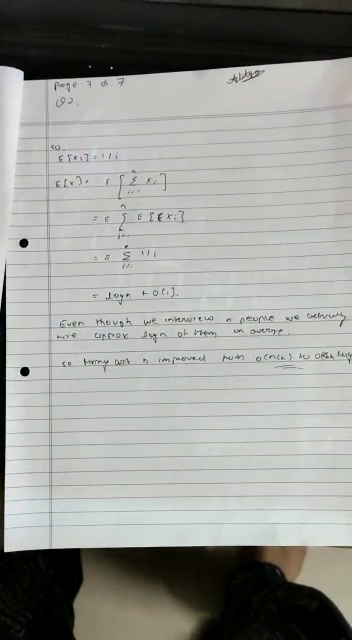 Page 7 of 7
Q2.
so.
E[xi] = 1/i
E[x] = E [ n Σ i=1 xi ]
= E n Σ i=1 E[xi]
= E n Σ i=1 1/i
= logn + O(1).
Even though we interview n people we actually
hire approx logn of them on average.
so hiring cost is improved from O(nCh) to